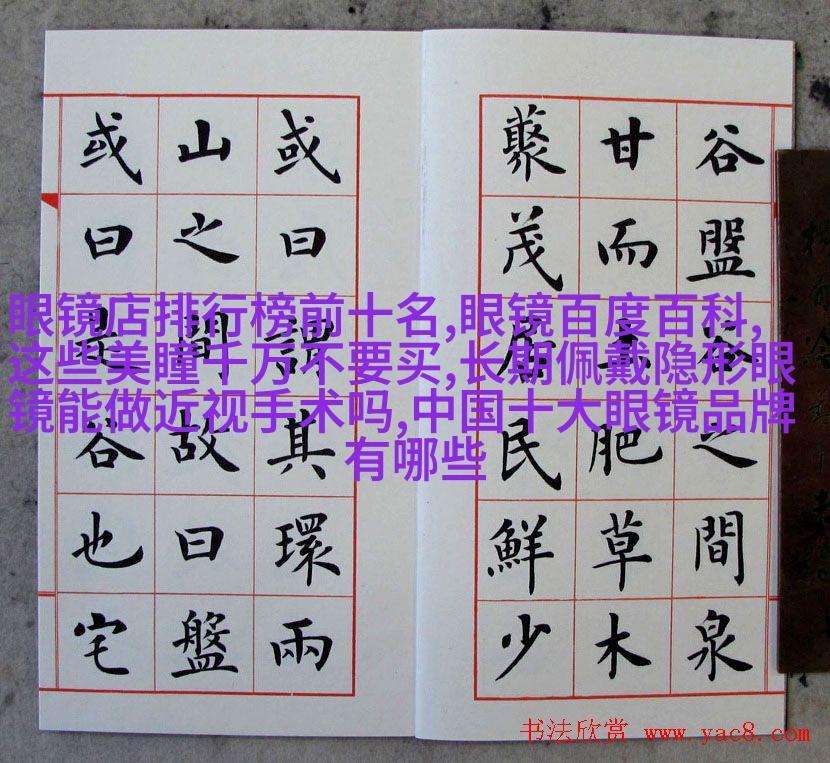 眼镜店排行榜前十名,眼镜百度百科,
这些美瞳千万不要买,长期佩戴隐形眼
镜能做近视手术吗,中国十大眼镜品牌
有哪些
谷盤谷之間泉
甘而土肥草木
藂茂居民鮮少
或曰謂其環兩
山之間故曰盤
或曰是谷也宅
书法欣赏 www.yac8.com